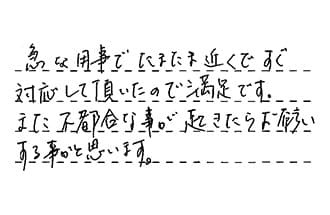 急な用事でたまたま近くですぐ
対応して頂いたので満足です。
また不都合な事が起きたらお願い
する事かと思います。